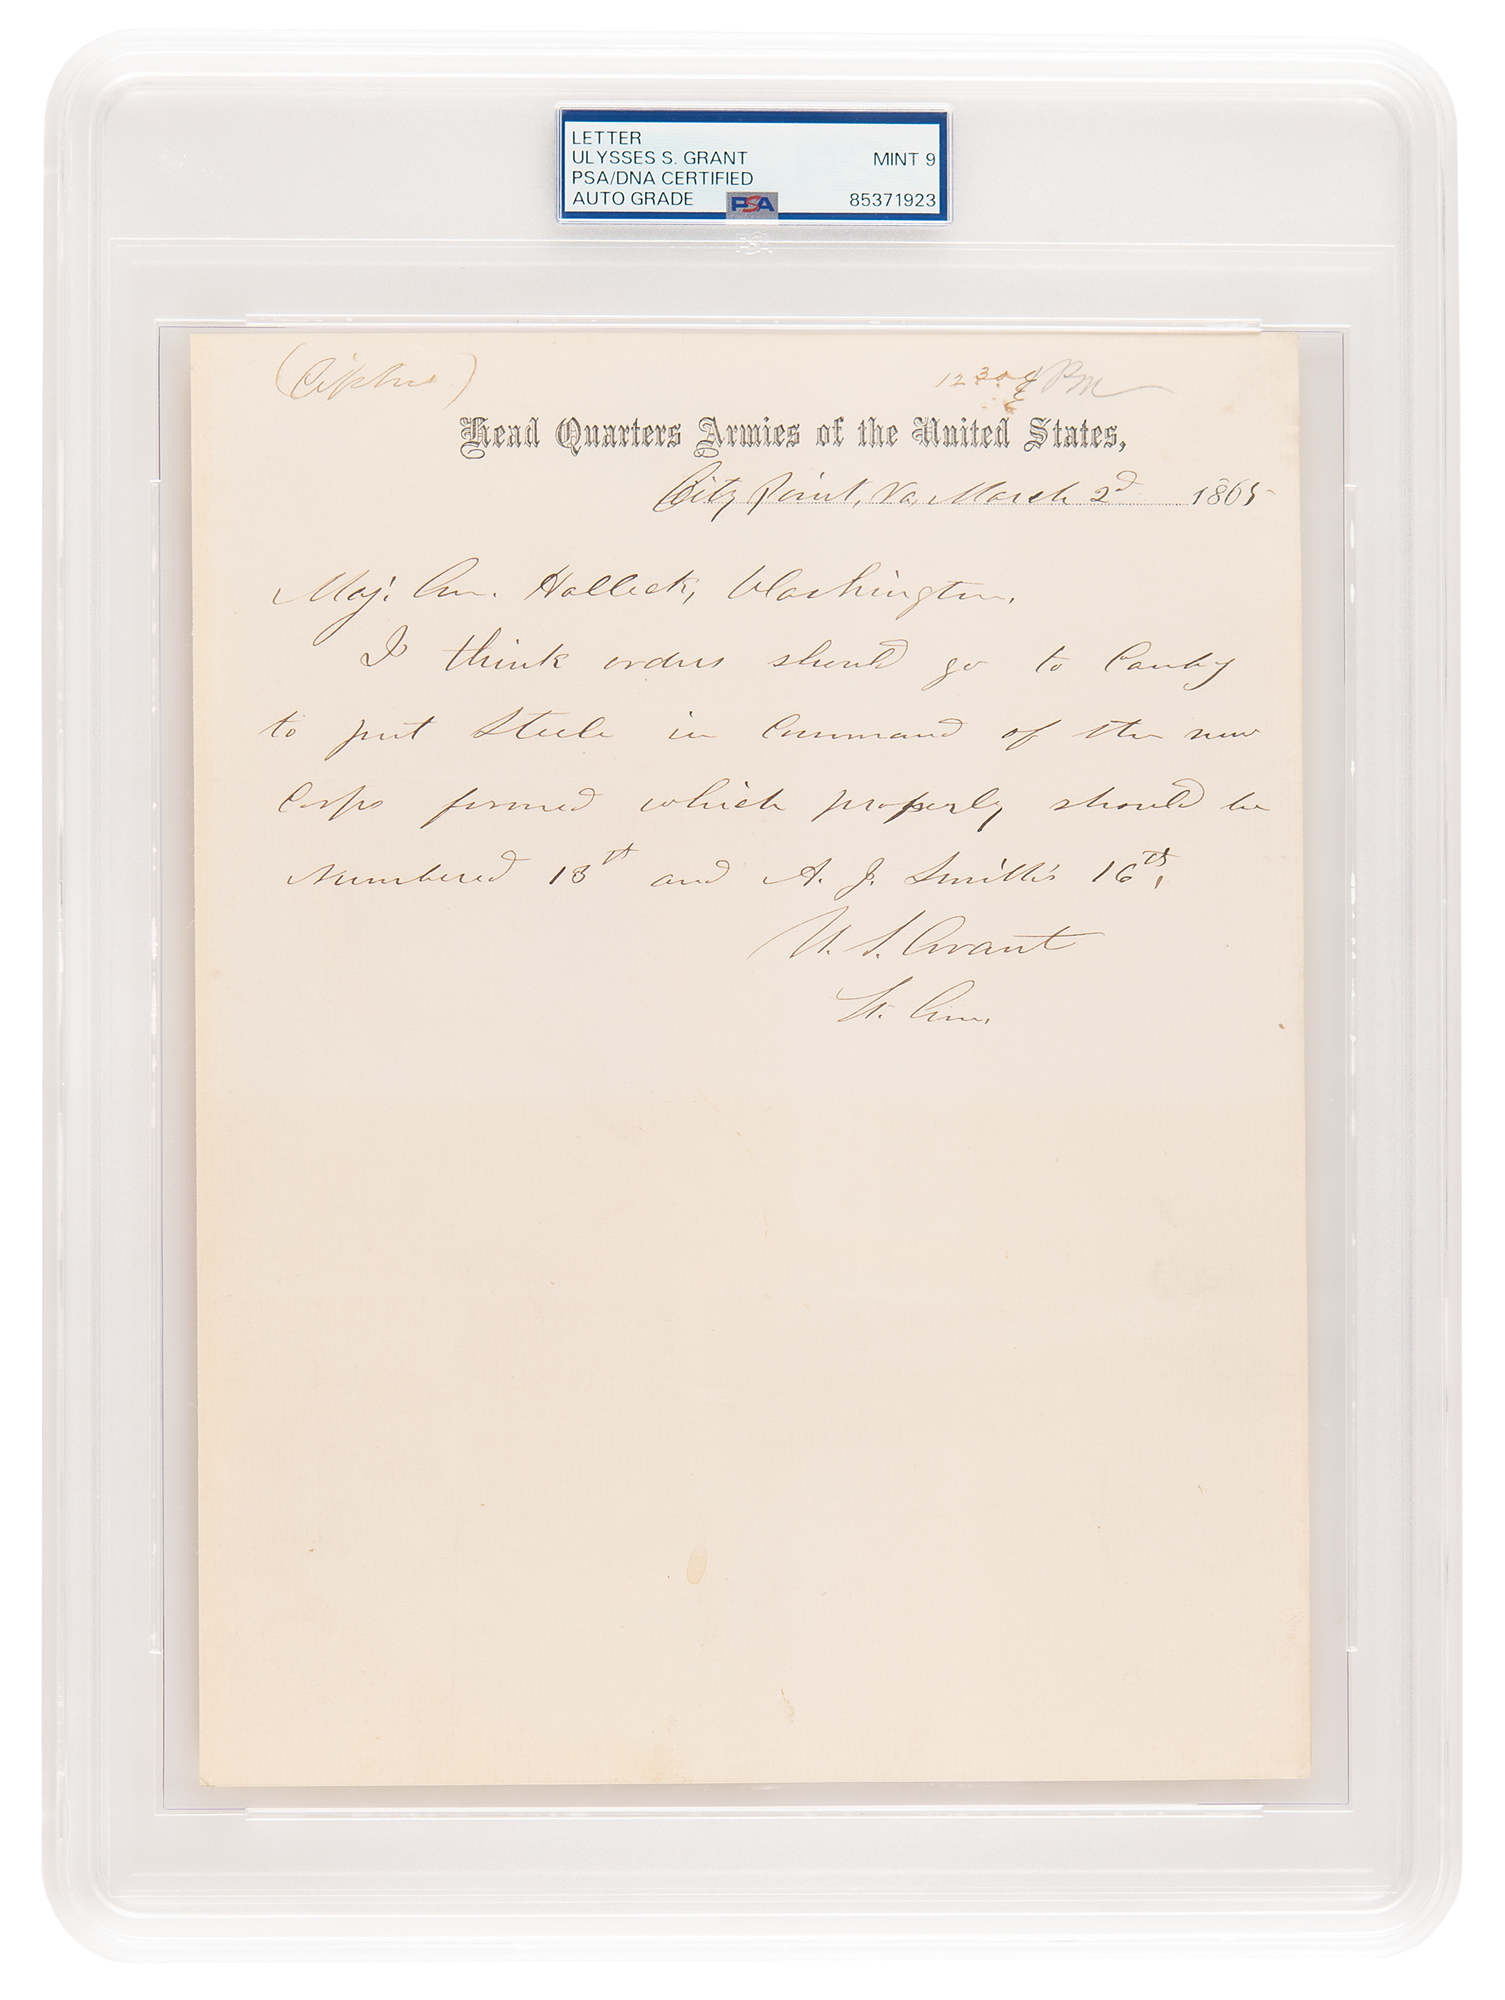 LETTER
ULYSSES S. GRANT MINT 9
PSA/DNA CERTIFIED
AUTO GRADE PSA 85371923
(Cipher) 12 30 PM
Head Quarters Armies of the United States,
City Point, Va, March 2d 1865
Maj. Gen. Halleck, Washington.
I think orders should go to Canby
to put Steele in command of the new
Corps formed which properly should be
numbered 13th and A. J. Smith's 16th.
U. S. Grant
Lt. Gen.